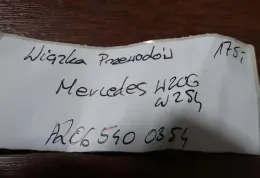 Wiązka Przewodów 175,-
Mercedes W206
W254
A206 540 0354